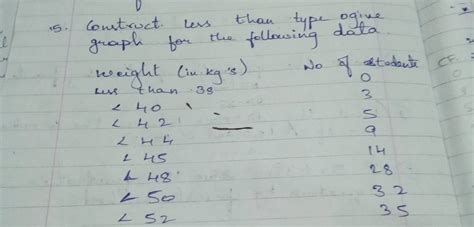 5. Construct less than type ogive
graph for the following data.
weight (in kg's) No of students
less than 38 0
< 40 3
< 42 5
< 44 9
< 45 14
< 48 28
< 50 32
< 52 35
CF